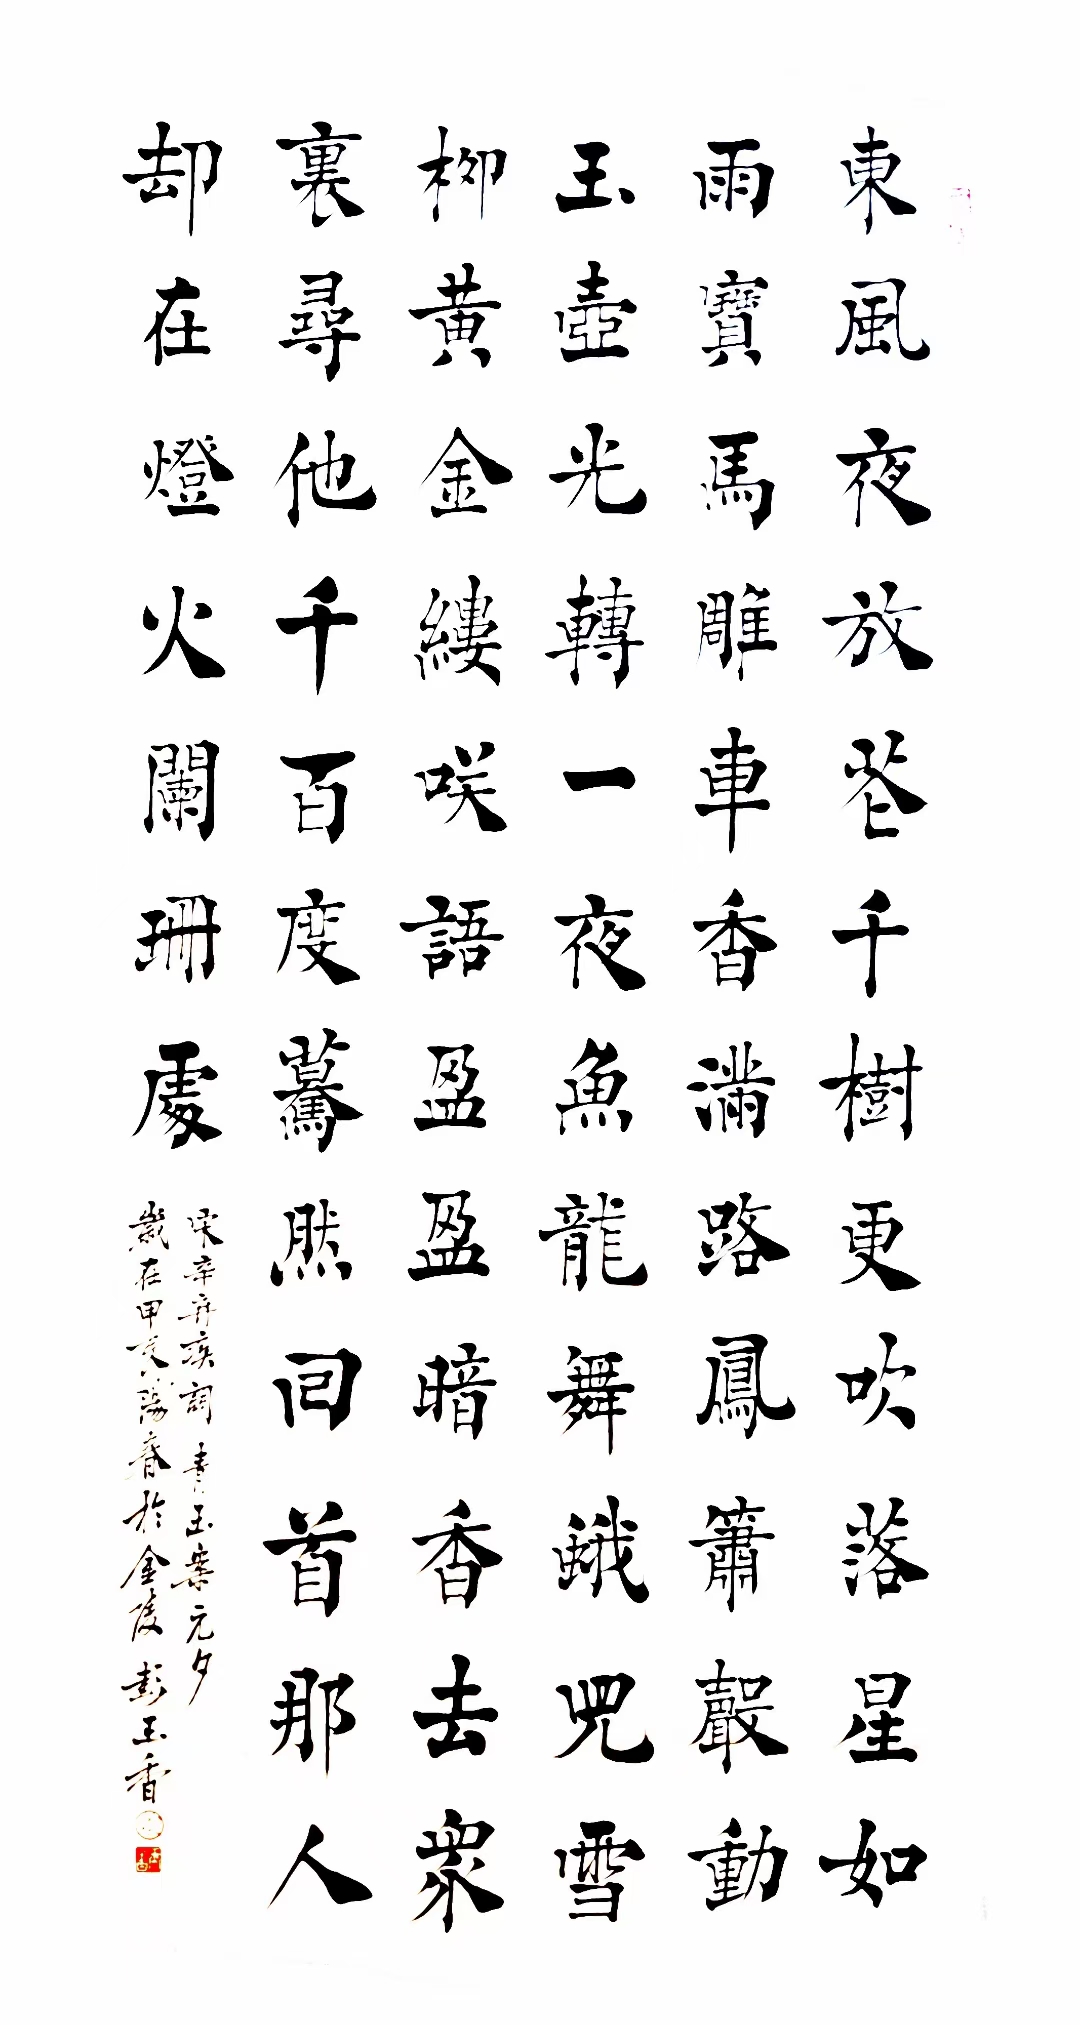 東風夜放花千樹更吹落星如
雨寶馬雕車香滿路鳳簫聲動
玉壺光轉一夜魚龍舞蛾兒雪
柳黃金縷咲語盈盈暗香去衆
裏尋他千百度驀然回首那人
却在燈火闌珊處
宋辛弃疾詞青玉案元夕
歲在甲辰陽春於金陵彭玉香